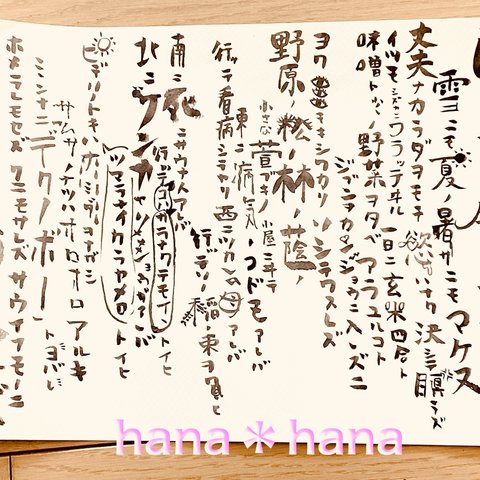 雪ニモ夏ノ暑サニモマケヌ
丈夫ナカラダヲモチ 慾ハナク 決シテ瞋ラズ
イツモシヅカニワラッテヰル 一日ニ玄米四合ト
味噌ト少シノ野菜ヲタベ アラユルコトヲ
ジブンヲカンジョウニ入レズニ
ヨクミキキシワカリ ソシテワスレズ
野原ノ松ノ林ノ蔭ノ
小サナ萱ブキノ小屋ニヰテ
東ニ病気ノコドモアレバ
行ッテ看病シテヤリ 西ニツカレタ母アレバ
行ッテソノ稲ノ束ヲ負ヒ
南ニ死ニサウナ人アレバ
行ッテコハガラナクテモイイトイヒ
北ニケンクヮヤソショウガアレバ
ツマラナイカラヤメロトイヒ
ヒデリノトキハナミダヲナガシ
サムサノナツハオロオロアルキ
ミンナニデクノボートヨバレ
ホメラレモセズ クニモサレズ サウイフモノニ
hana＊hana